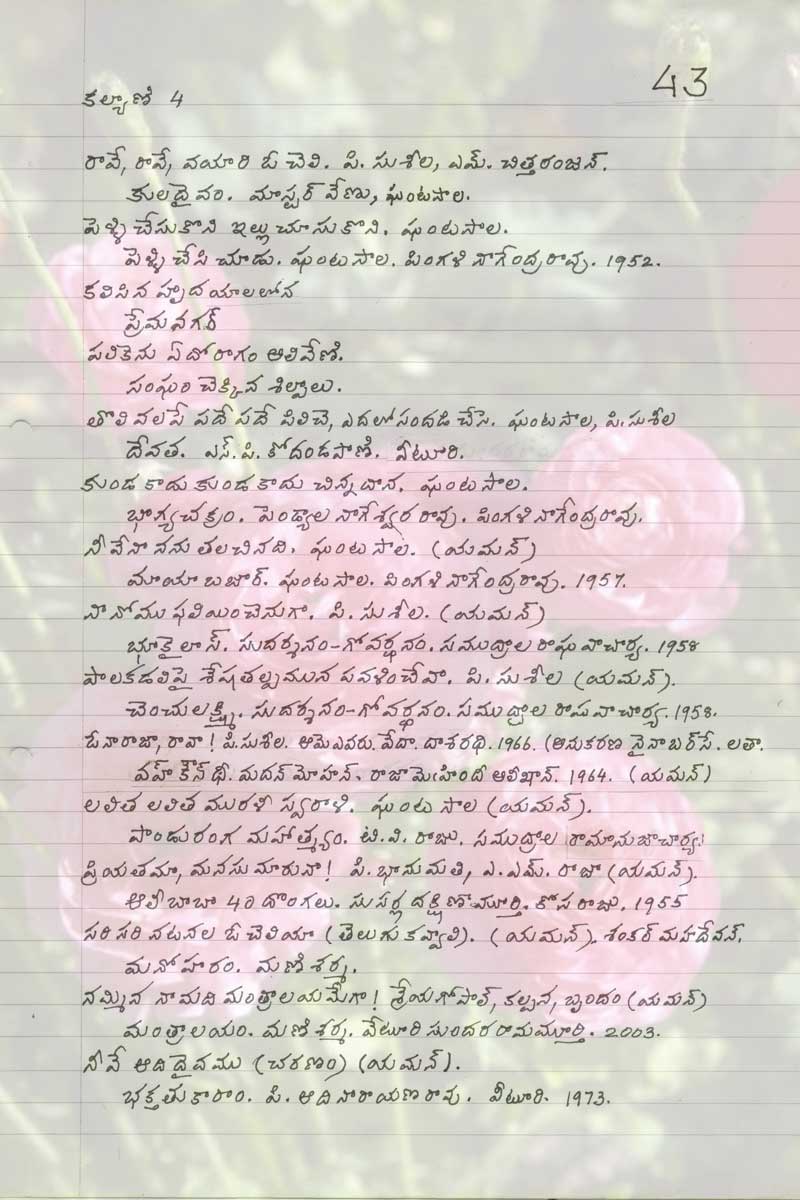 43
కల్యాణి 4
రావే, రావే, వయారి ఓ చెలి. పి. సుశీల, ఎమ్. చిత్తరంజన్.
కులదైవం. మాస్టర్ వేణు, ఘంటసాల.
పెళ్ళి చేసుకొని ఇల్లు చూసుకొని. ఘంటసాల.
పెళ్ళి చేసి చూడు. ఘంటసాల. పింగళి నాగేంద్రరావు. 1952.
కలిసిన హృదయాలలోన
ప్రేమనగర్
పలికెను ఏదోరాగం అలివేణి.
పంఘం చెక్కిన శిల్పాలు.
తొలివలపే పదే పదే పిలిచె, ఎదలో సందడి చేసె. ఘంటసాల, పి.సుశీల
దేవత. ఎస్.పి. కోదండపాణి. వీటూరి.
కుండ కాదు కుండ కాదు చిన్నదాన. ఘంటసాల.
భాగ్యచక్రం. పెండ్యాల నాగేశ్వరరావు. పింగళి నాగేంద్రరావు.
నీవేనా నను తలచినది. ఘంటసాల. (యమన్)
మాయా బజార్. ఘంటసాల. పింగళి నాగేంద్రరావు. 1957.
నా నోము ఫలియించెనుగా. పి. సుశీల. (యమన్)
భూకైలాస్. సుదర్శనం-గోవర్ధనం. సముద్రాల రాఘవాచార్య. 1958
పాలకడలిపై శేషతల్పమున పవళించేవా. పి. సుశీల (యమన్).
చెంచులక్ష్మి. సుదర్శనం-గోవర్ధనం. సముద్రాల రాఘవాచార్య. 1958.
ఓ నారాజా, రావా! పి.సుశీల. ఆమె ఎవరు. వేదా. దాశరథి. 1966. (అనుకరణ నైనా బర్‌సే. లతా.
వహ్ కౌన్ థీ. మదన్ మోహన్. రాజా మెహిందీ అలీఖాన్. 1964. (యమన్)
లలిత లలిత మురళీ స్వరాళి. ఘంటసాల (యమన్).
పాండురంగ మహాత్మ్యం. టి.వి. రాజు. సముద్రాల రామానుజాచార్య.
ప్రియతమా, మనసు మారునా! పి. భానుమతి, ఎ. ఎమ్. రాజా (యమన్).
ఆలీబాబా 40 దొంగలు. సుసర్ల దక్షిణామూర్తి. కోసరాజు. 1955
సరి సరి నటనల ఓ చెలియా (తెలుగు కవ్వాలి). (యమన్). శంకర్ మహదేవన్.
మనోహరం. మణిశర్మ.
నమ్మిన నా మది మంత్రాలయమేగా! శ్రేయగోపాల్, కల్పన, బృందం (యమన్)
మంత్రాలయం. మణిశర్మ. వేటూరి సుందరరామమూర్తి. 2003.
నీవే ఆదిదైవము (చరణం) (యమన్).
భక్తతుకారాం. పి. ఆదినారాయణరావు. వీటూరి. 1973.